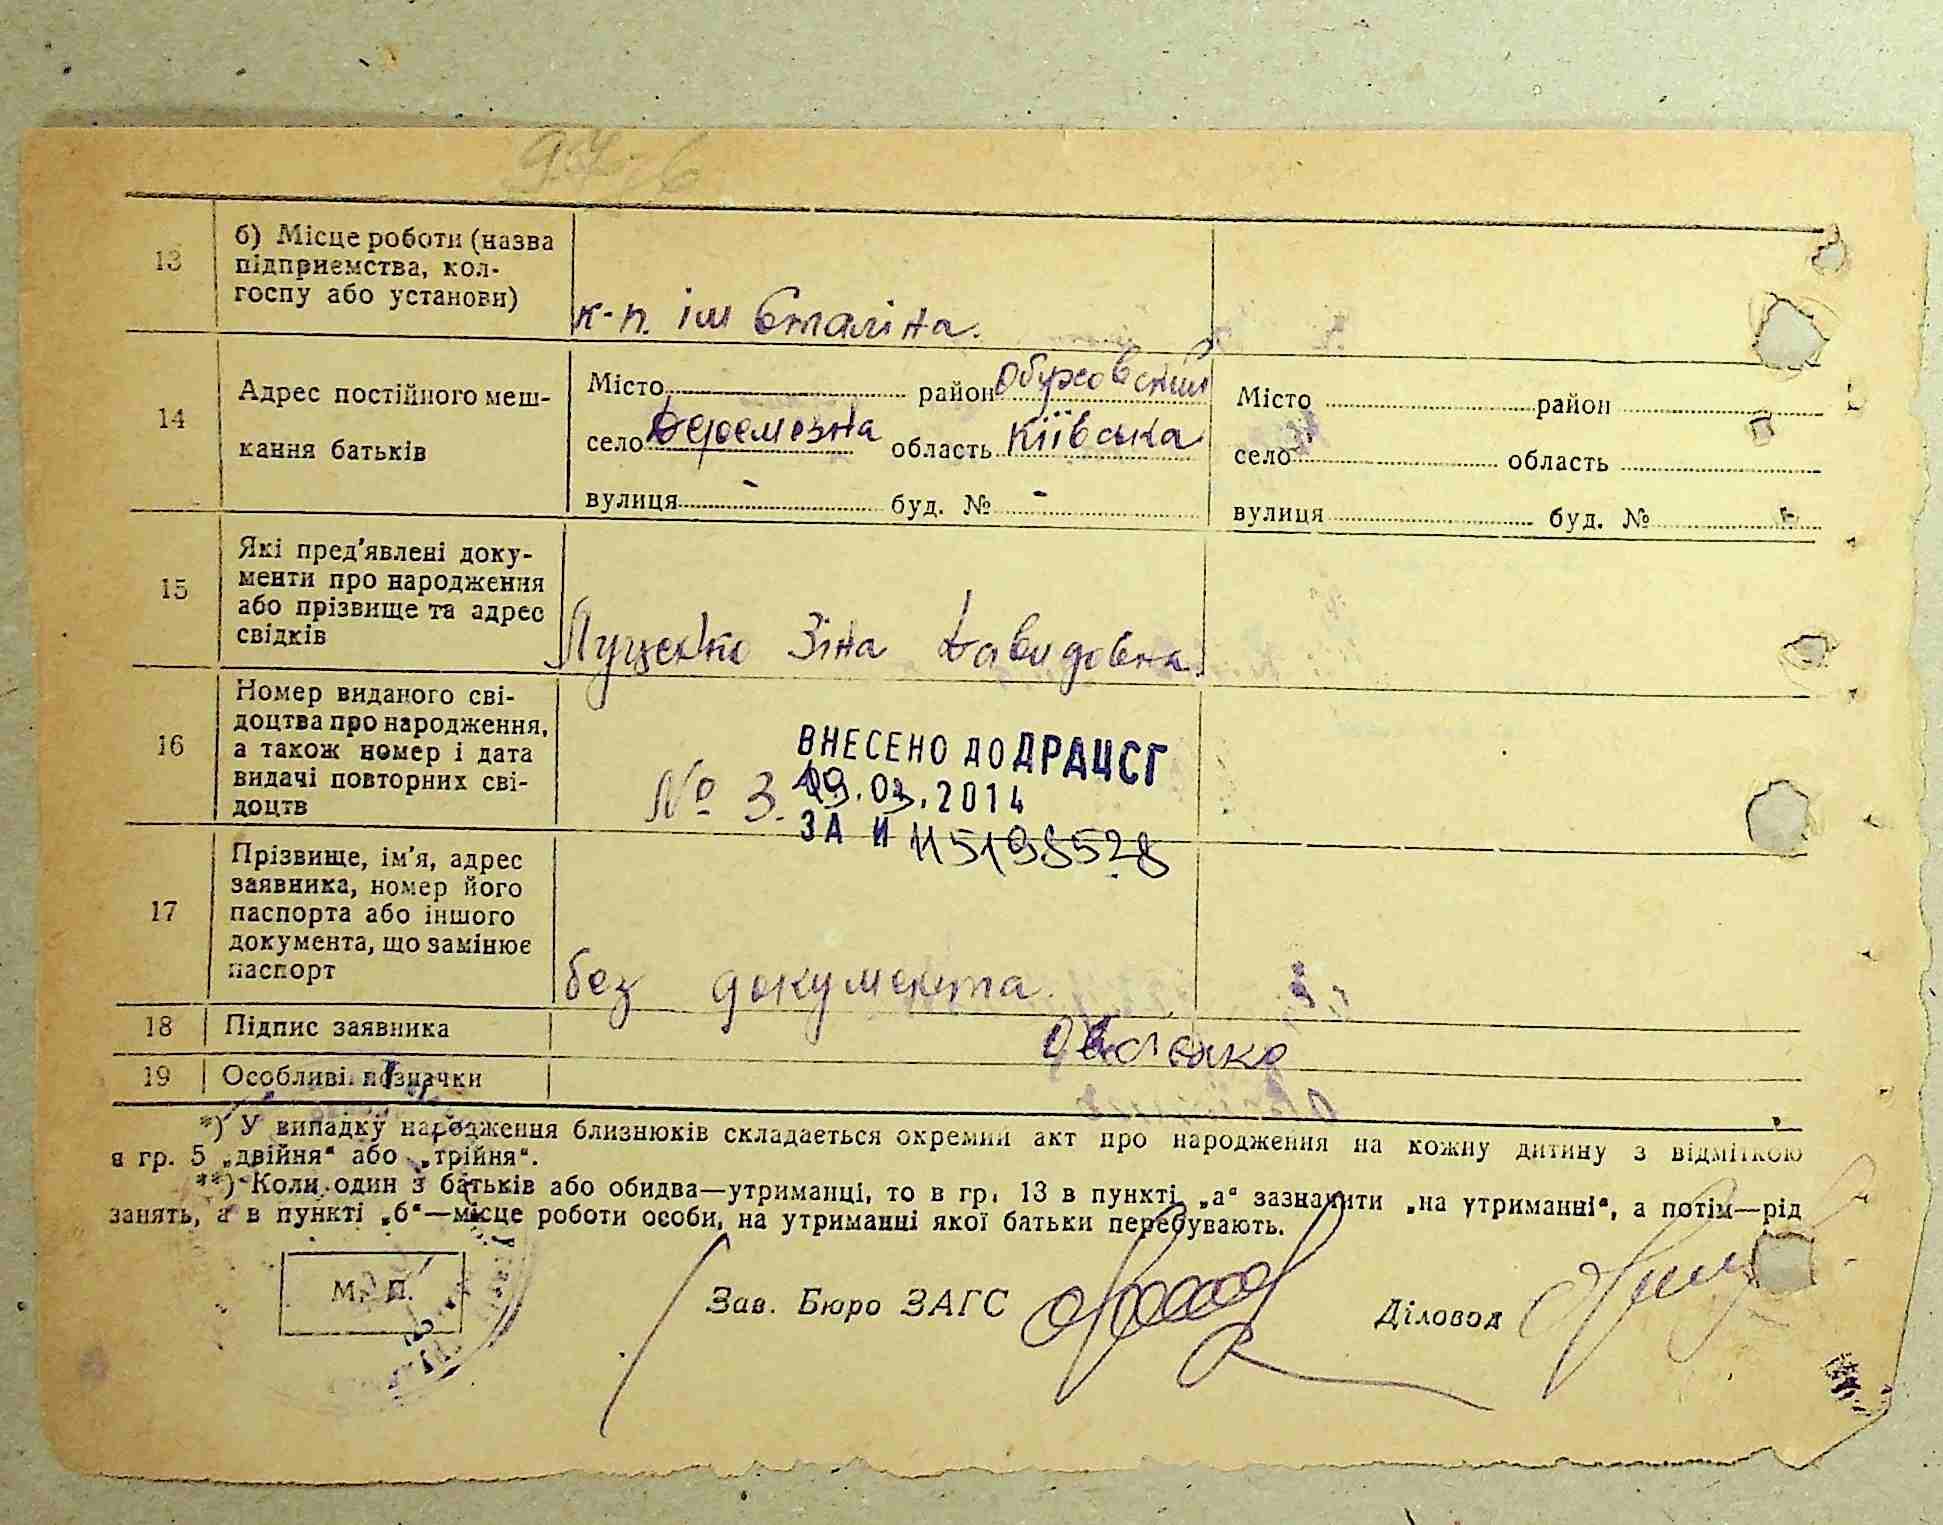 97-6
13
б) Місце роботи (назва
підприємства, кол-
госпу або установи)
к-п. ім Сталіна.
14
Адрес постійного меш-
кання батьків
Місто район Обуховский
село Деремезна область Київська
вулиця - буд. № -
Місто район
село область
вулиця буд. №
15
Які пред'явлені доку-
менти про народження
або прізвище та адрес
свідків
Луценко Зіна Давидовна
16
Номер виданого сві-
доцтва про народження,
а також номер і дата
видачі повторних сві-
доцтв
№ 3.
ВНЕСЕНО ДО ДРАЦСГ
19.03.2014
ЗА И 115198528
17
Прізвище, ім'я, адрес
заявника, номер його
паспорта або іншого
документа, що замінює
паспорт
без документа.
18
Підпис заявника
19
Особливі позначки
*) У випадку народження близнюків складається окремий акт про народження на кожну дитину з відміткою
в гр. 5 „двійня“ або „трійня“.
**) Коли один з батьків або обидва—утриманці, то в гр. 13 в пункті „а“ зазначити „на утриманні“, а потім—рід
занять, а в пункті „б“—місце роботи особи, на утриманні якої батьки перебувають.
М. П.
Зав. Бюро ЗАГС
Діловод